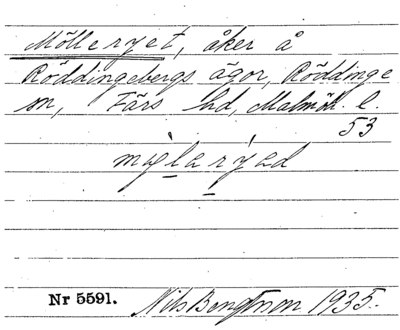 Mölleryet, åker å
Röddingebergs ägor, Röddinge
sn, Färs hd, Malmöh. l.
53
Nr 5591.
Nils Bengtsson 1935.